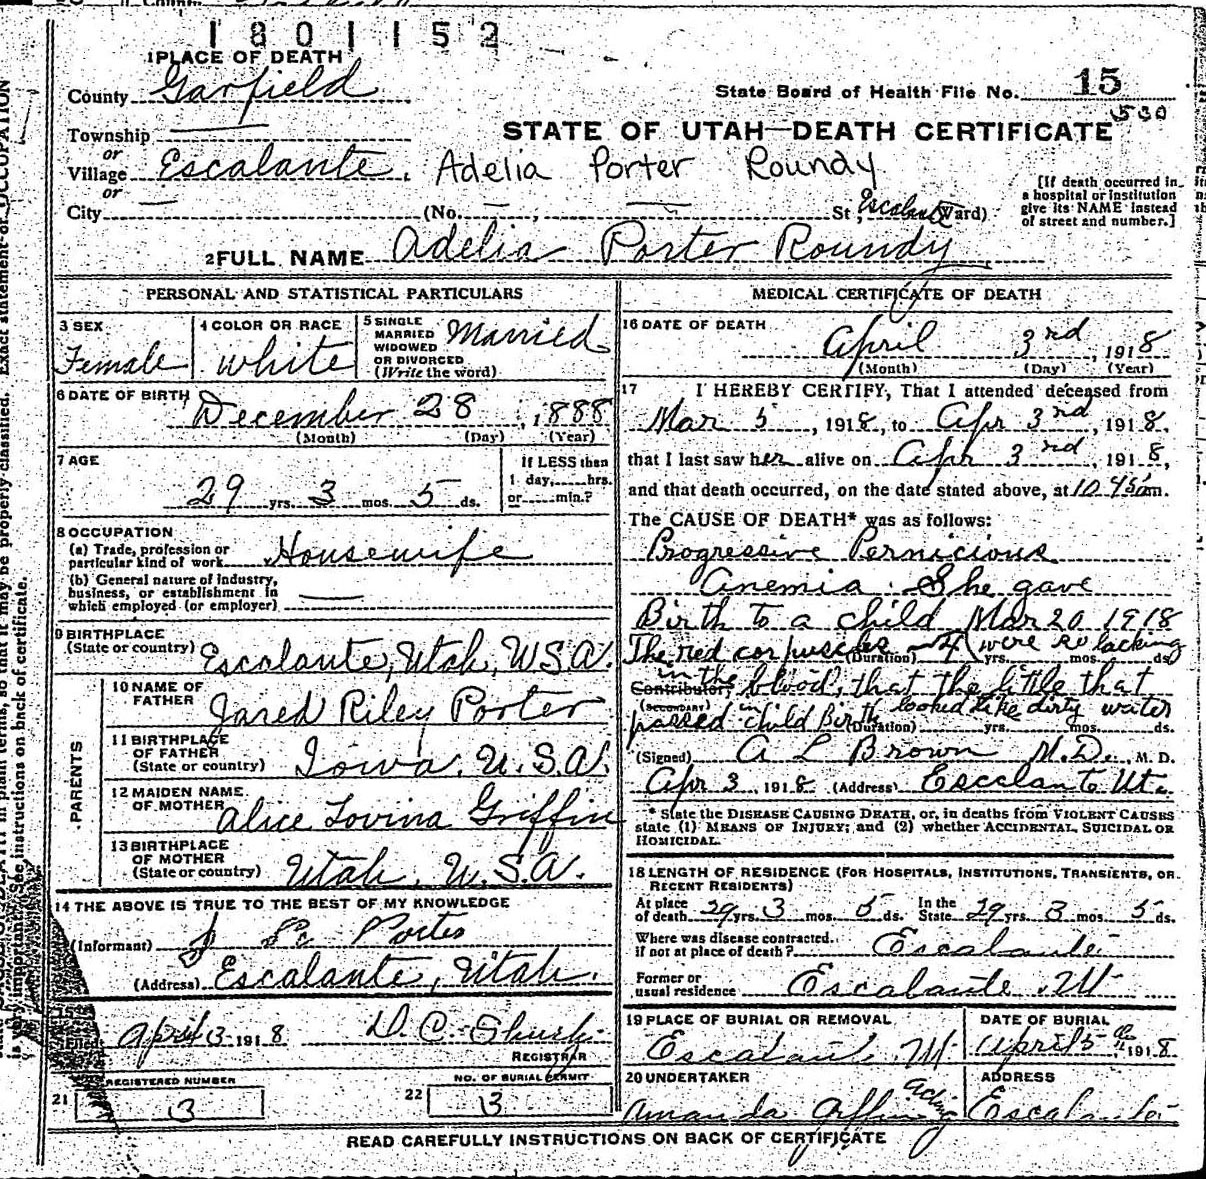 1801152
1 PLACE OF DEATH
County Garfield
State Board of Health File No. 15
530
Township
or
STATE OF UTAH—DEATH CERTIFICATE
Village Escalante. Adelia Porter Roundy
or
City (No. , St Escalante Ward)
[If death occurred in
a hospital or institution
give its NAME instead
of street and number.]
2 FULL NAME Adelia Porter Roundy
PERSONAL AND STATISTICAL PARTICULARS
3 SEX
Female
4 COLOR OR RACE
White
5 SINGLE
MARRIED
WIDOWED
OR DIVORCED
(Write the word)
Married
6 DATE OF BIRTH December 28, 1888
(Month) (Day) (Year)
7 AGE
29 yrs. 3 mos. 5 ds.
If LESS than
1 day, hrs.
or min.?
8 OCCUPATION
(a) Trade, profession or
particular kind of work Housewife
(b) General nature of industry,
business, or establishment in
which employed (or employer)
9 BIRTHPLACE
(State or country) Escalante, Utah, U.S.A.
PARENTS
10 NAME OF
FATHER Jared Riley Porter
11 BIRTHPLACE
OF FATHER
(State or country) Iowa. U.S.A.
12 MAIDEN NAME
OF MOTHER Alice Lovina Griffin
13 BIRTHPLACE
OF MOTHER
(State or country) Utah, U.S.A.
14 THE ABOVE IS TRUE TO THE BEST OF MY KNOWLEDGE
(Informant) Porter
(Address) Escalante, Utah.
15
Filed April 3 1918 D. C. Shurtz
REGISTRAR
REGISTERED NUMBER
21 3
NO. OF BURIAL PERMIT
22 3
MEDICAL CERTIFICATE OF DEATH
16 DATE OF DEATH
April 3rd, 1918
(Month) (Day) (Year)
17 I HEREBY CERTIFY, That I attended deceased from
Mar 5, 1918, to Apr 3rd, 1918,
that I last saw her alive on Apr 3rd, 1918,
and that death occurred, on the date stated above, at 10 45 m.
The CAUSE OF DEATH* was as follows:
Progressive Pernicious
Anemia. She gave
Birth to a child Mar 20 1918
The red corpuscles (Duration) yrs. were so lacking mos. ds.
Contributory in the blood, that the little that
(SECONDARY)
passed in child Birth looked like dirty water
(Duration) yrs. mos. ds.
(Signed) A L Brown M.D., M. D.
Apr 3, 1918 (Address) Escalante Ut.
* State the DISEASE CAUSING DEATH, or, in deaths from VIOLENT CAUSES
state (1) MEANS OF INJURY; and (2) whether ACCIDENTAL, SUICIDAL OR
HOMICIDAL.
18 LENGTH OF RESIDENCE (FOR HOSPITALS, INSTITUTIONS, TRANSIENTS, OR
RECENT RESIDENTS)
At place
of death 29 yrs. 3 mos. 5 ds.
In the
State 29 yrs. 3 mos. 5 ds.
Where was disease contracted,
if not at place of death? Escalante
Former or
usual residence Escalante Ut
19 PLACE OF BURIAL OR REMOVAL
Escalante, Ut
DATE OF BURIAL
April 5th 1918
20 UNDERTAKER
Amanda acting
ADDRESS
Escalante
READ CAREFULLY INSTRUCTIONS ON BACK OF CERTIFICATE
in plain terms, so that it may be properly classified. Exact statement of OCCUPATION
is very important. See instructions on back of certificate.